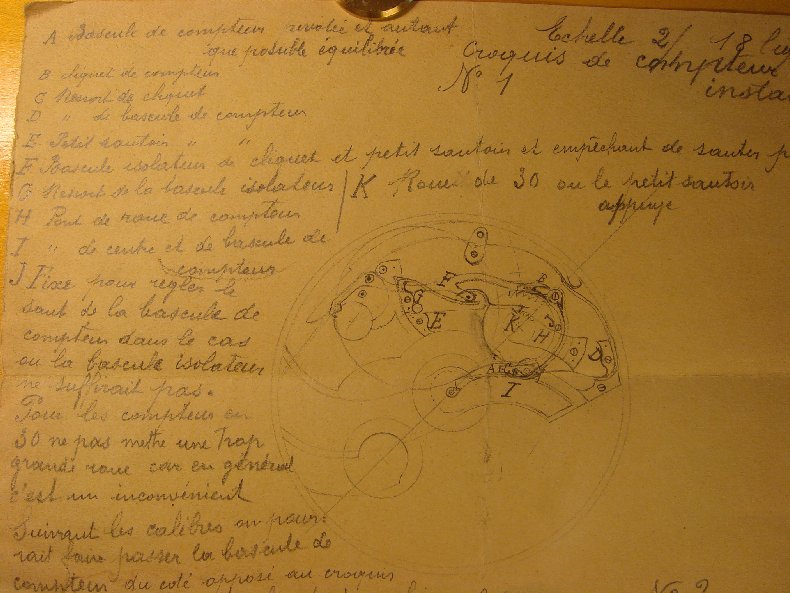 A Bascule de compteur rivolée et autant
que possible équilibrée
Echelle 2/ 18 lig
Croquis de compteur
N° 1 insta
B cliquet de compteur
C Ressort de cliquet
D " de bascule de compteur
E Petit sautoir " "
F Bascule isolateur de cliquet et petit sautoir et empêchant de sauter p
G Ressort de la bascule isolateur
K Roue de 30 ou le petit sautoir
appuye
H Pont de roue de compteur
I " de centre et de bascule de
compteur
J Fixe pour régler le
saut de la bascule de
compteur dans le cas
ou la bascule isolateur
ne suffirait pas.
Pour les compteur en
30 ne pas mettre une trop
grande roue car en général
c'est un inconvénient
Suivant les calibres on pour-
rait faire passer la bascule de
compteur du coté opposé au croquis
F B
G E K H D
A C
I
N° 2